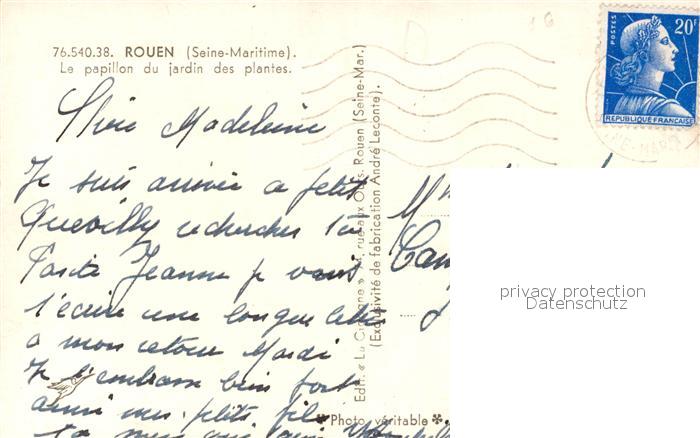 76.540.38. ROUEN (Seine-Maritime).
Le papillon du jardin des plantes.
POSTES
20F
REPUBLIQUE FRANÇAISE
Chère Madeleine
Je suis arrivée a petit
Quevilly rechercher ta
Tante Jeanne je vais
t'écrire une longue lettre
a mon retour Mardi
Je t'embrasse bien fort
ainsi mes petits
Edit. « La Cigogne » rue aux Ours. Rouen (Seine-Mar.)
(Exclusivité de fabrication André Leconte).
privacy protection
Datenschutz
Photo véritable